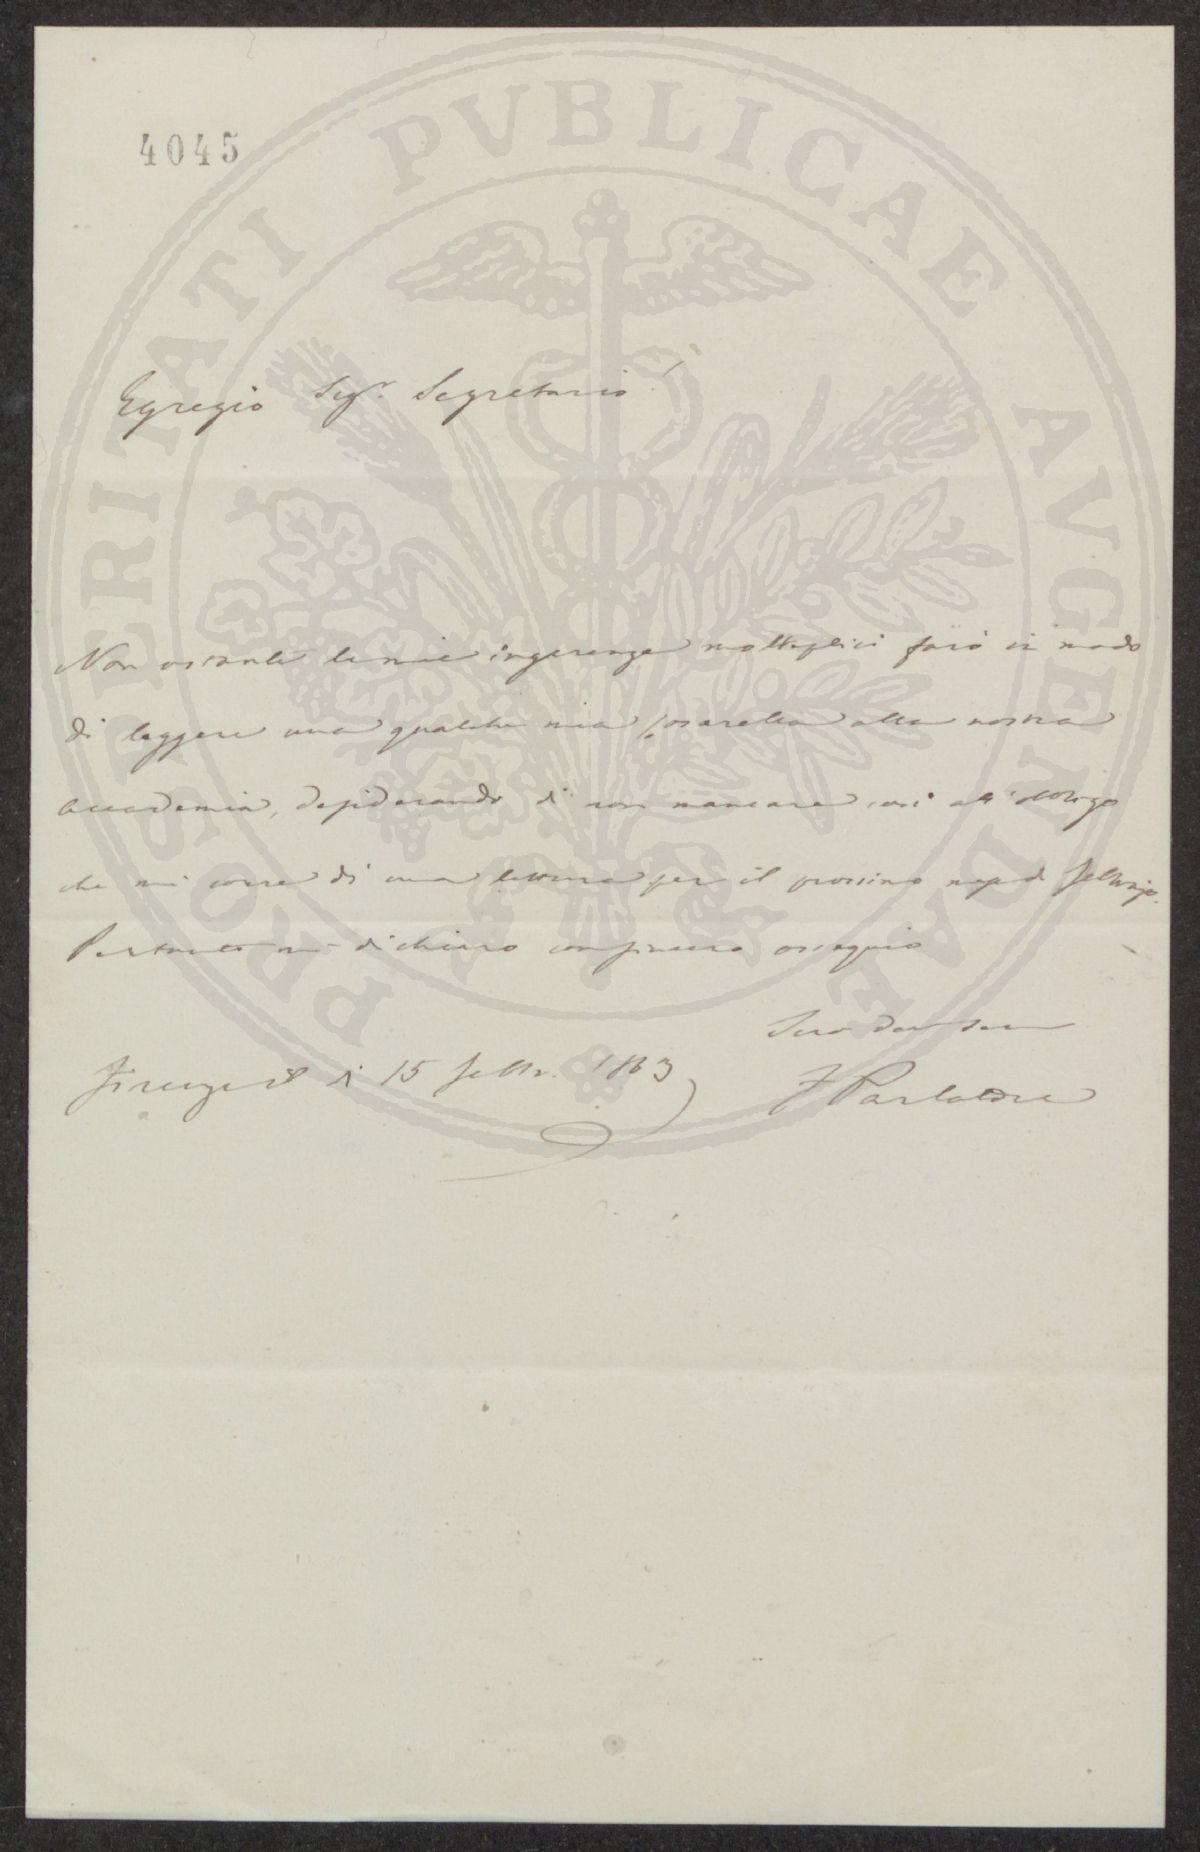 4045
PROSPERITATI PVBLICAE AVGENDAE
Egregio Sigr. Segretario!
Non ostante le mie ingerenze molteplici farò in modo
di leggere una qualche mia cosarella alla nostra
Accademia, desiderando di non mancare così all'obbligo
che mi corre di una lettura per il prossimo mese di
Pertanto mi dichiaro con sincero ossequio
Suo
Firenze il dì 15 1863
F Parlatore